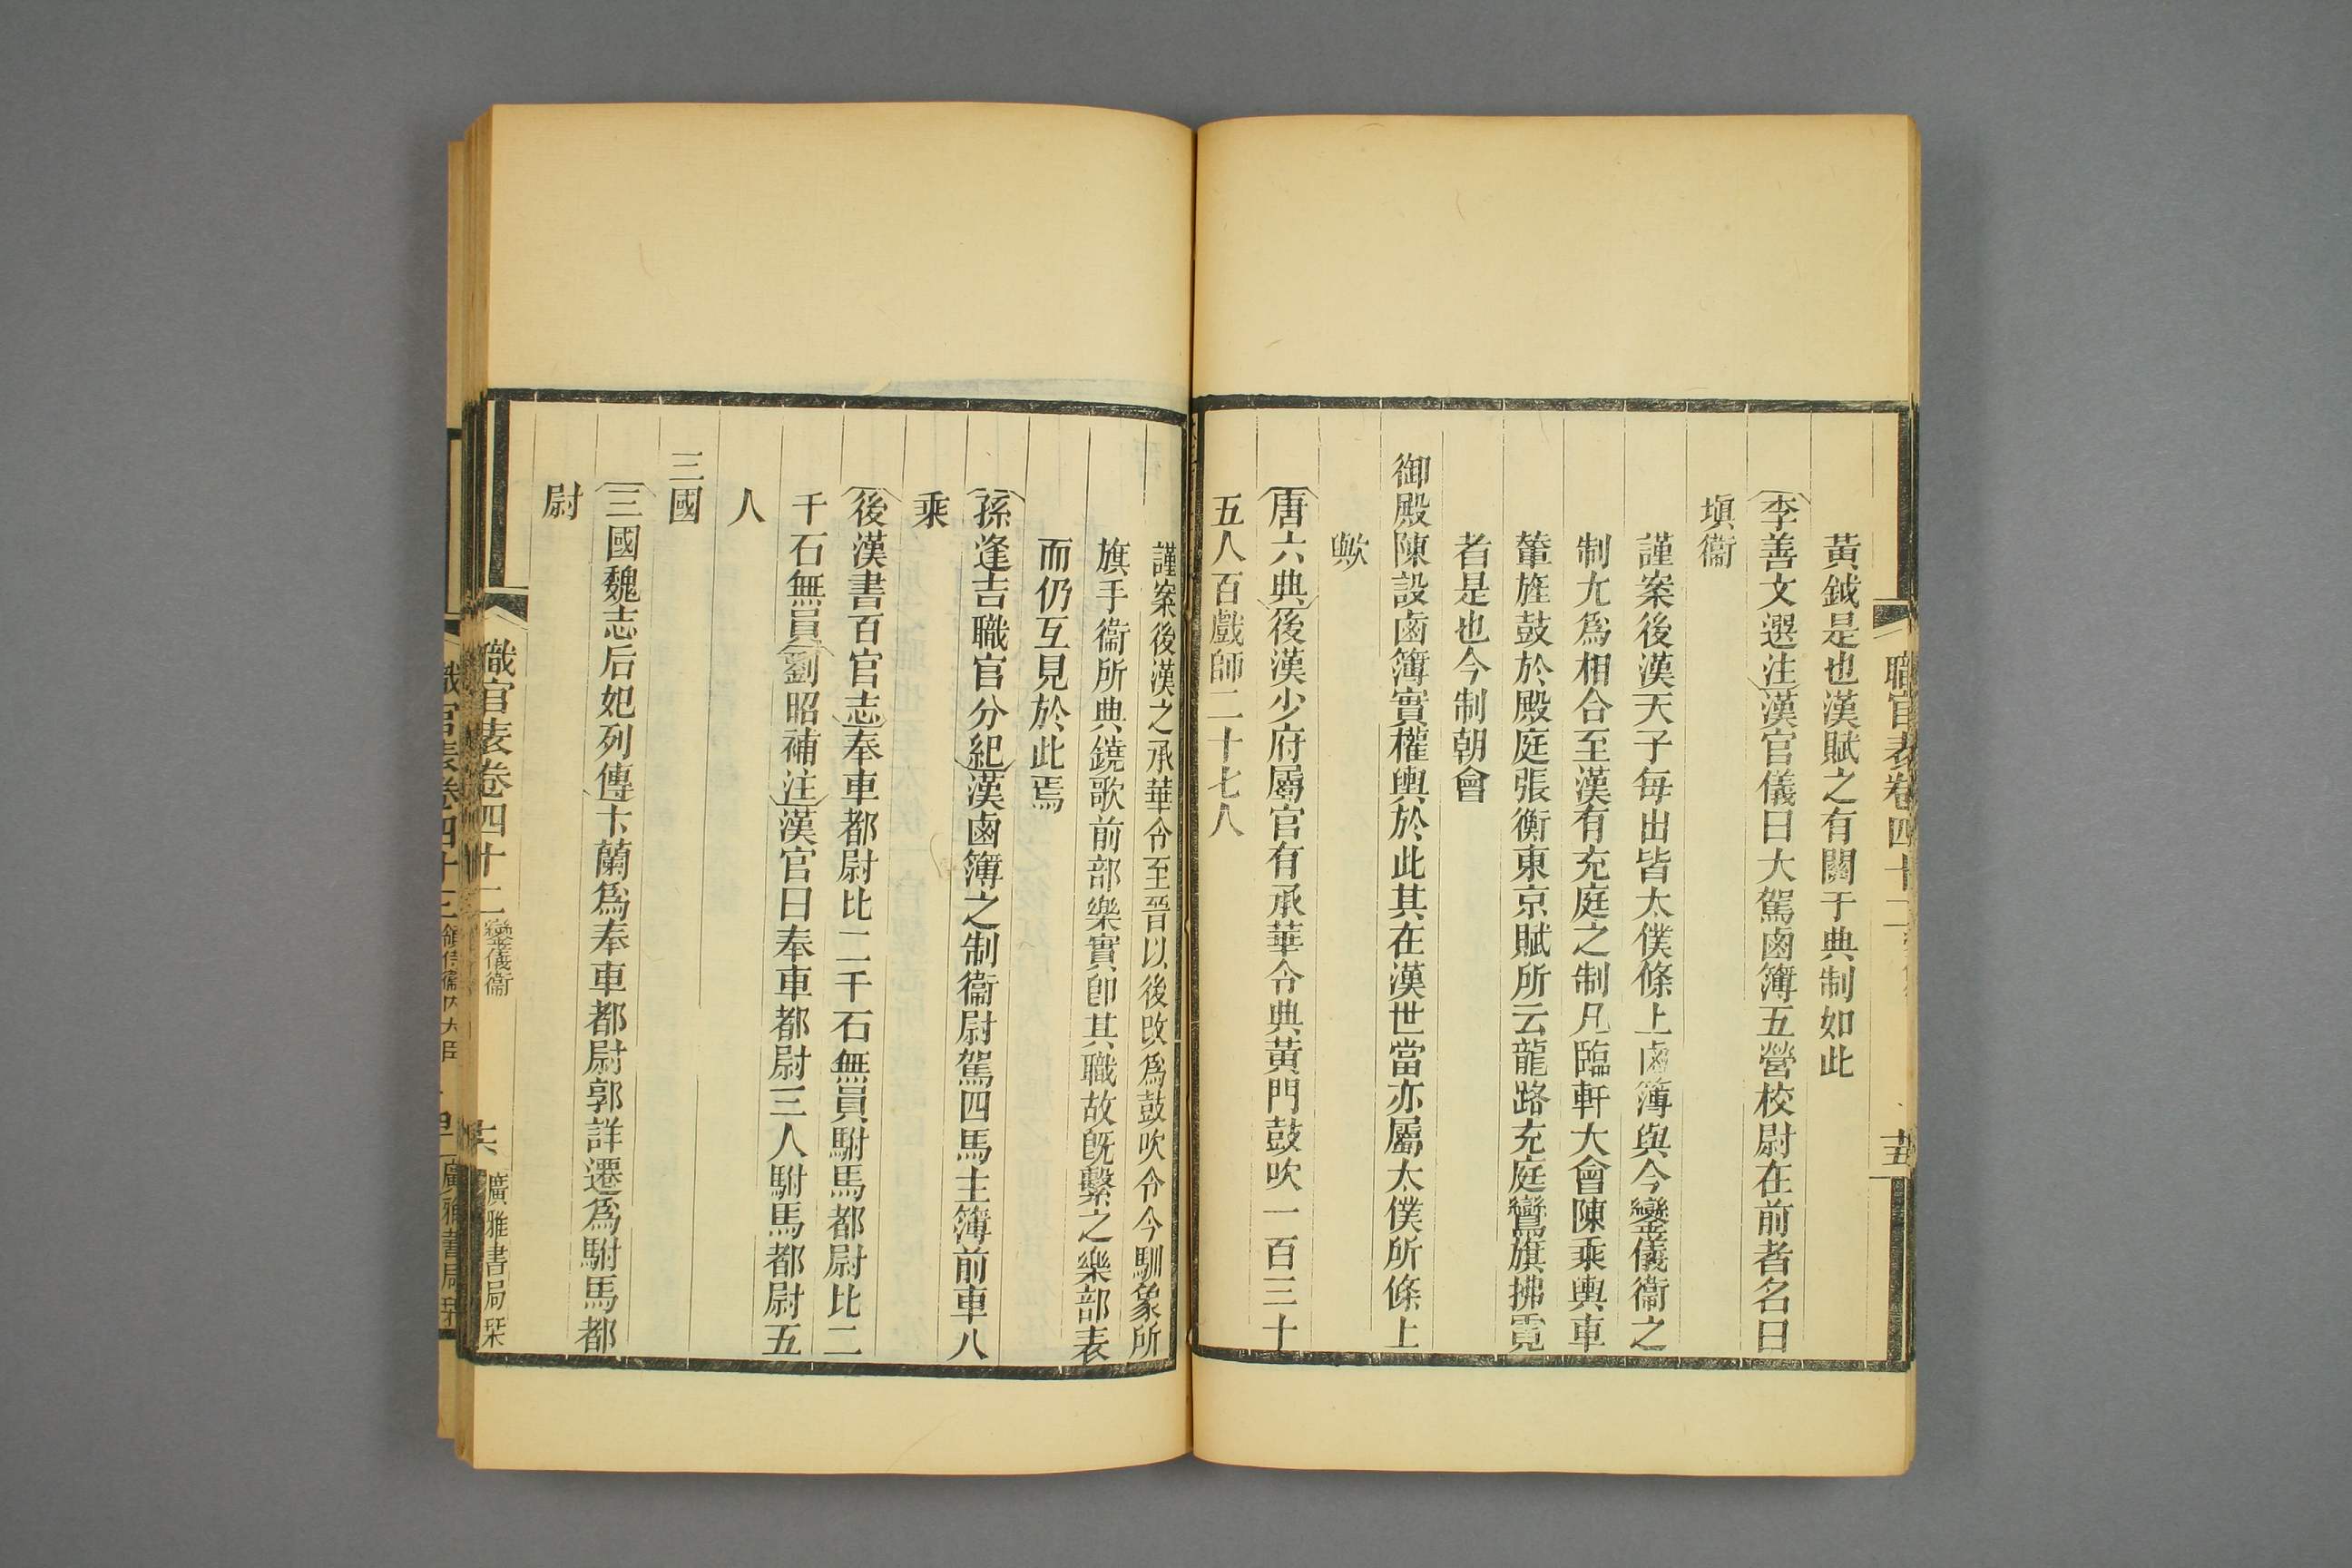 職官表卷四十二
黃鉞是也漢賦之有關于典制如此
李善文選注漢官儀曰大駕鹵簿五營校尉在前者名曰
塡衞
謹案後漢天子每出皆太僕條上鹵簿與今鑾儀衞之
制尤爲相合至漢有充庭之制凡臨軒大會陳乘輿車
輦旌鼓於殿庭張衡東京賦所云龍路充庭鸞旗拂霓
者是也今制朝會
御殿陳設鹵簿實權輿於此其在漢世當亦屬太僕所條上
歟
唐六典後漢少府屬官有承華令典黃門鼓吹一百三十
五人百戲師二十七人
謹案後漢之承華令至晉以後改爲鼓吹令今馴象所
旗手衞所典鐃歌前部樂實卽其職故旣繫之樂部表
而仍互見於此焉
孫逢吉職官分紀漢鹵簿之制衞尉駕四馬主簿前車八
乘
後漢書百官志奉車都尉比二千石無員駙馬都尉比二
千石無員劉昭補注漢官曰奉車都尉三人駙馬都尉五
人
三國
三國魏志后妃列傳卞蘭爲奉車都尉郭詳遷爲駙馬都
尉
職官表卷四十二 鑾儀衞 廣雅書局栞